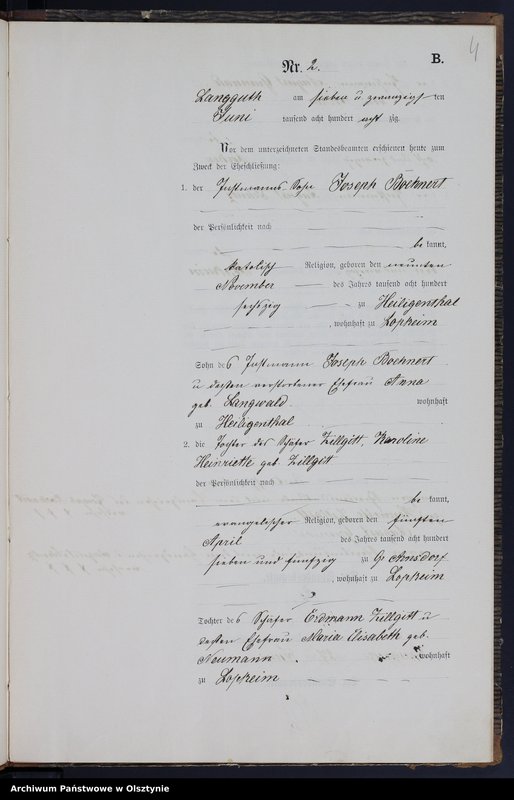 4
B.
Nr. 2.
Langguth am sieben u zwanzigsten
Juni tausend acht hundert acht zig
Vor dem unterzeichneten Standesbeamten erschienen heute zum
Zweck der Eheschließung:
1. der Instmanns Sohn Joseph Boehnert
der Persönlichkeit nach
be kannt,
katolisch Religion, geboren den neunten
November des Jahres tausend acht hundert
sechszig zu Heiligenthal
, wohnhaft zu Lopkeim
Sohn des Instmann Joseph Boehnert
u dessen verstorbener Ehefrau Anna
geb. Langwald wohnhaft
zu Heiligenthal
2. die Tochter des Schäfer Zillgitt, Karoline
Heinriette geb. Zillgitt
der Persönlichkeit nach
be kannt,
evangelischer Religion, geboren den fünften
April des Jahres tausend acht hundert
sieben und funfzig zu Gr Arnsdorf
, wohnhaft zu Lopkeim
Tochter des Schäfer Erdmann Zillgitt u
dessen Ehefrau Maria Elisabeth geb.
Neumann wohnhaft
zu Lopkeim
Archiwum Państwowe w Olsztynie